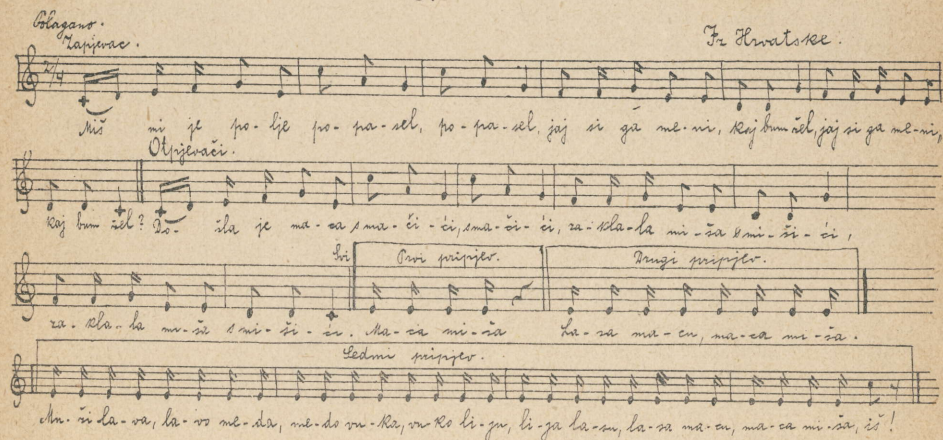 Polagano.
Zapjevac. Iz Hrvatske.
2/4
Miš mi je po-lje po-pa-sel, po-pa-sel, jaj si ga me-ni, kaj bum žel, jaj si ga me-ni,
Otpjevači.
kaj bum žel? Do-šla je ma-ca s ma-či-ći, s ma-či-ći, za-kla-la mi-ša s mi-ši-ći,
Svi Prvi pripjev. Drugi pripjev.
za-kla-la mi-ša s mi-ši-ći. Ma-ca mi-ša La-sa ma-cu, ma-ca mi-ša.
Sedmi pripjev.
la-va, la-vo me-da, me-do vu-ka, vu-ko li-ju, li-ja la-su, la-sa ma-cu, ma-ca mi-ša, iš!